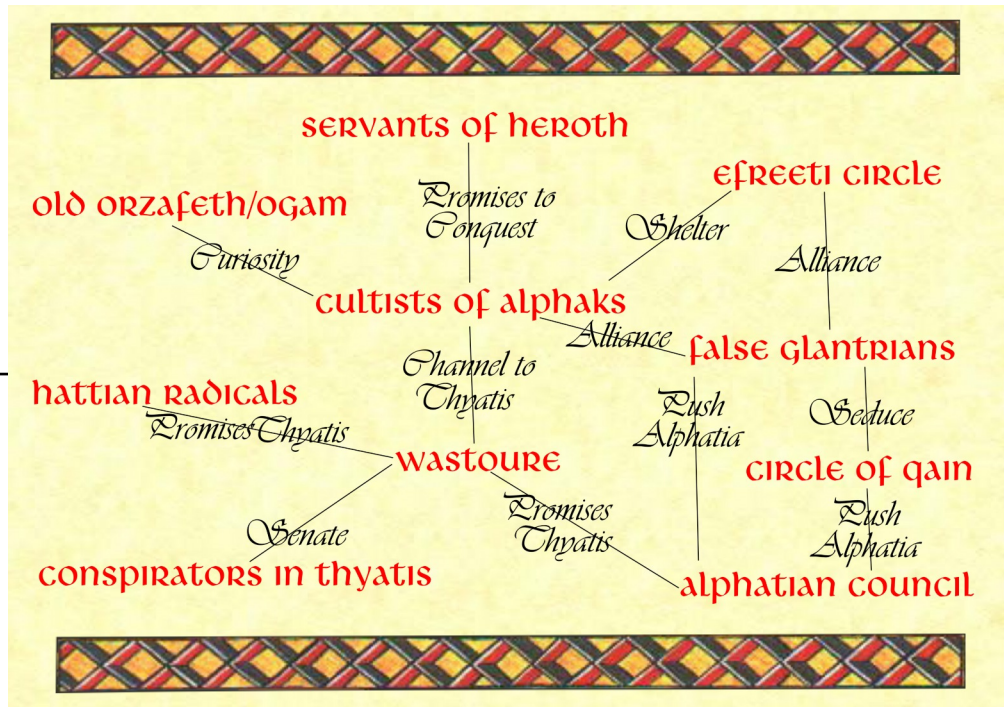 servants of heroth
efreeti circle
old orzafeth/ogam
Promises to
Conquest
Shelter
Curiosity
Alliance
cultists of alphaks
Alliance
false glantrians
Channel to
Thyatis
hattian radicals
Push
Alphatia
Seduce
PromisesThyatis
wastoure
circle of qain
Promises
Thyatis
Push
Alphatia
Senate
conspirators in thyatis
alphatian council